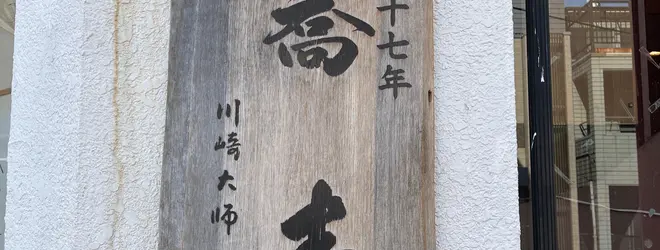 十七年
喬
川崎大師